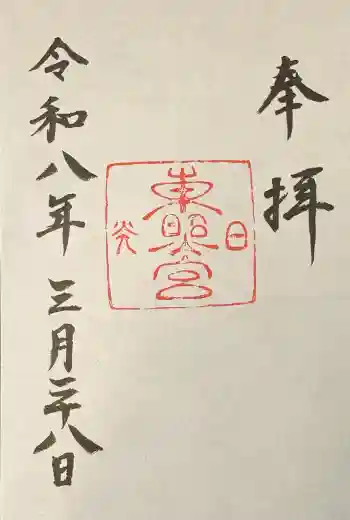 奉拝
日
東照宮
光
令和八年 三月二十八日